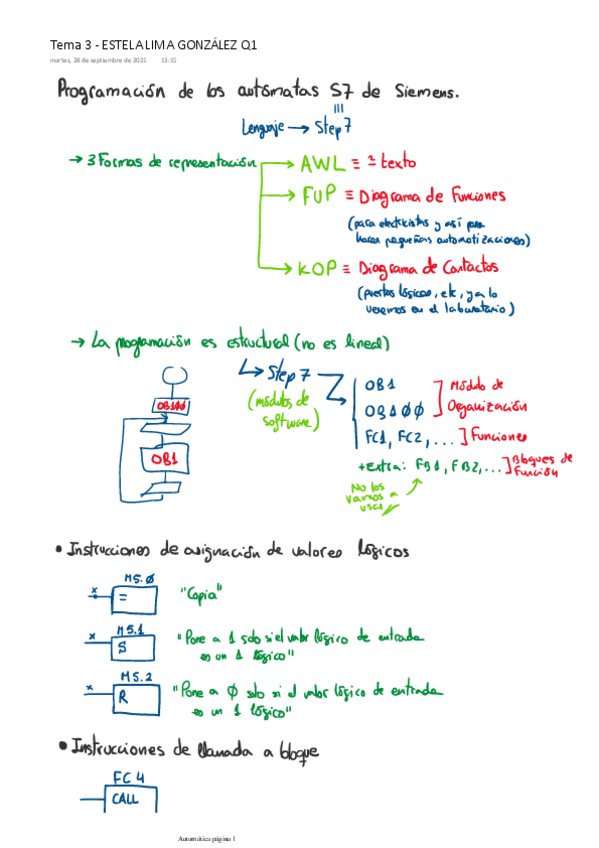 Tema 3 - ESTELA LIMA GONZÁLEZ Q1
martes, 28 de septiembre de 2021 13:15
Programación de los autómatas S7 de Siemens.
Lenguaje → Step 7
→ 3 Formas de representación → AWL ≡ texto
→ FUP ≡ Diagrama de Funciones
(para electricistas y así para
hacer pequeñas automatizaciones)
→ KOP ≡ Diagrama de Contactos
(puertas lógicas, etc, ya lo
veremos en el laboratorio)
→ La programación es estructural (no es lineal)
Step 7
(módulos de
software)
OB1
OB100
Módulo de
Organización
FC1, FC2, ... ] Funciones
+ Extra: FB1, FB2, ... ] Bloques de
Función
No los
vamos a
usar
OB100
OB1
• Instrucciones de asignación de valores lógicos
M5.0
x
=
"Copia"
M5.1
x
S
"Pone a 1 solo si el valor lógico de entrada
es un 1 lógico"
M5.2
x
R
"Pone a 0 solo si el valor lógico de entrada
es un 1 lógico"
• Instrucciones de llamada a bloque
FC 4
CALL
Automática página 1